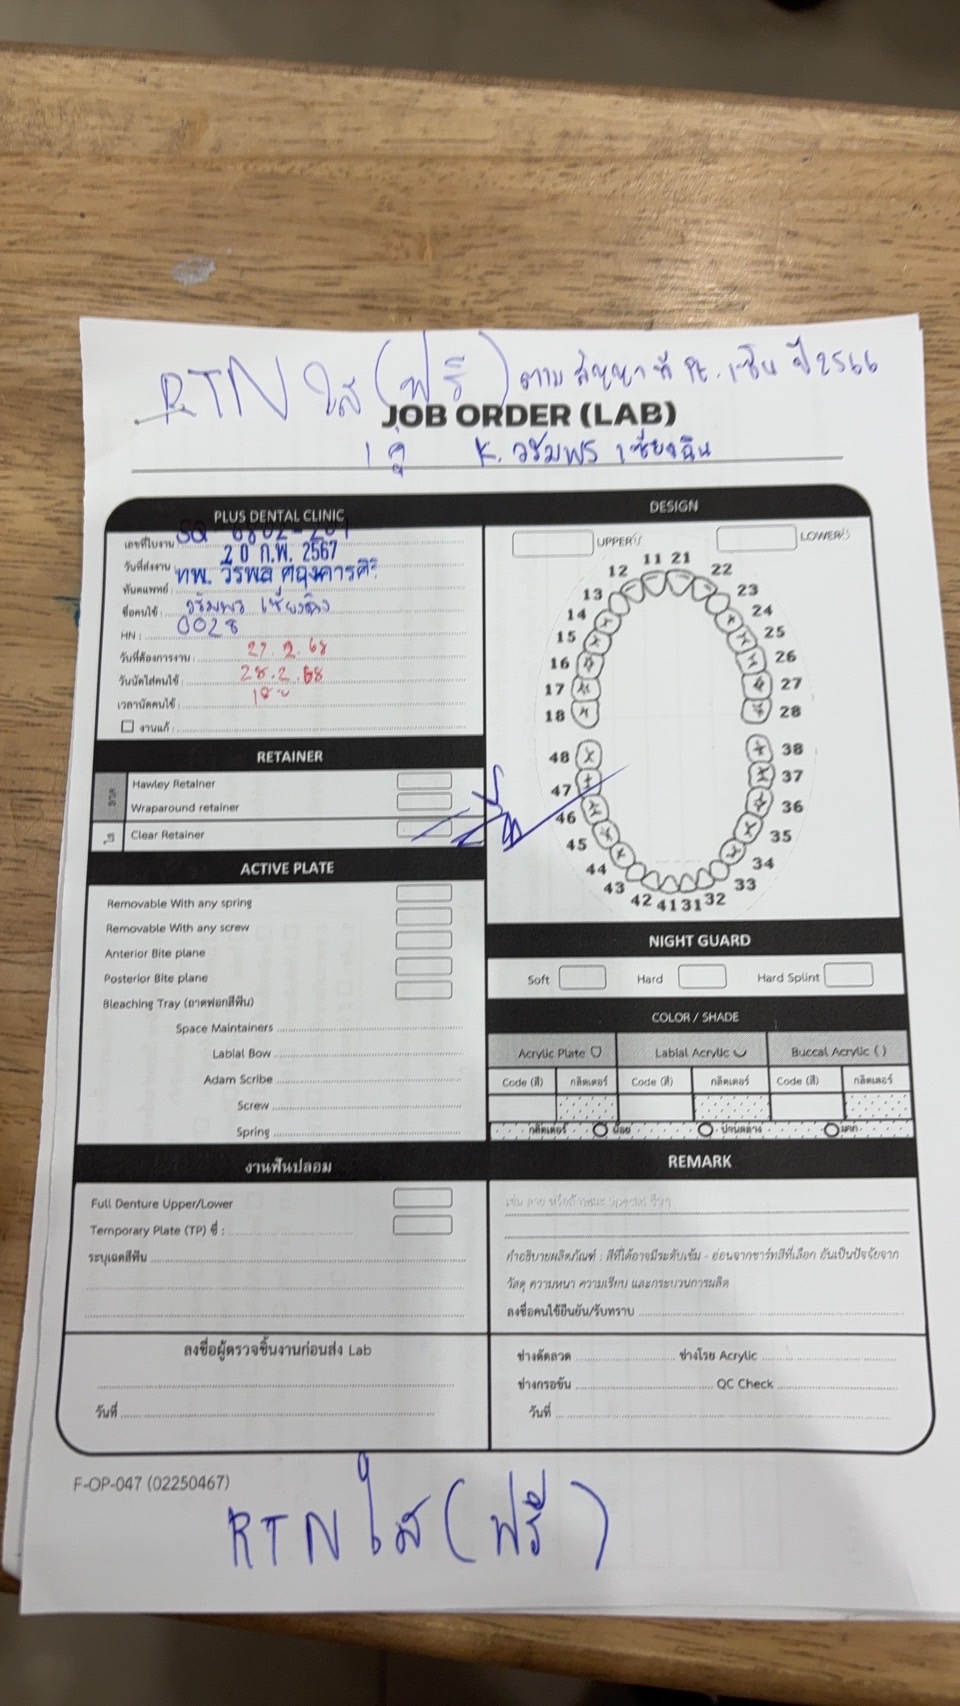 RTN ใส (ฟรี) ตามสัญญาที่ Pt. เซ็น ปี 2566
JOB ORDER (LAB)
1 คู่ K. วรัมพร เซี่ยงฉิน
PLUS DENTAL CLINIC
เลขที่ใบงาน : SQ 6802-201
วันที่ส่งงาน : 20 ก.พ. 2567
ทันตแพทย์ : ทพ. วีรพล
ชื่อคนไข้ : วรัมพร
HN : 0028
วันที่ต้องการงาน : 27.2.68
วันนัดใส่คนไข้ : 28.2.68
เวลานัดคนไข้ : 18
งานแก้ :
RETAINER
ลวด
Hawley Retainer
Wraparound retainer
ใส
Clear Retainer
ACTIVE PLATE
Removable With any spring
Removable With any screw
Anterior Bite plane
Posterior Bite plane
Bleaching Tray (ถาดฟอกสีฟัน)
Space Maintainers
Labial Bow
Adam Scribe
Screw
Spring
งานฟันปลอม
Full Denture Upper/Lower
Temporary Plate (TP) ซี่ :
ระบุเฉดสีฟัน
ลงชื่อผู้ตรวจชิ้นงานก่อนส่ง Lab
วันที่
DESIGN
UPPER
LOWER
11 21
12 22
13 23
14 24
15 25
16 26
17 27
18 28
48 38
47 37
46 36
45 35
44 34
43 33
42 41 31 32
NIGHT GUARD
Soft Hard Hard Splint
COLOR / SHADE
Acrylic Plate Labial Acrylic Buccal Acrylic ( )
Code (สี) กลิตเตอร์ Code (สี) กลิตเตอร์ Code (สี) กลิตเตอร์
กลิตเตอร์ น้อย ปานกลาง มาก
REMARK
เช่น ลาย หรือลักษณะ Special อื่นๆ
คำอธิบายผลิตภัณฑ์ : สีที่ได้อาจมีระดับเข้ม - อ่อนจากชาร์ทสีที่เลือก อันเป็นปัจจัยจาก
วัสดุ ความหนา ความเรียบ และกระบวนการผลิต
ลงชื่อคนไข้ยืนยัน/รับทราบ
ช่างดัดลวด ช่างโรย Acrylic
ช่างกรอขัน QC Check
วันที่
F-OP-047 (02250467)
RTN ใส (ฟรี)